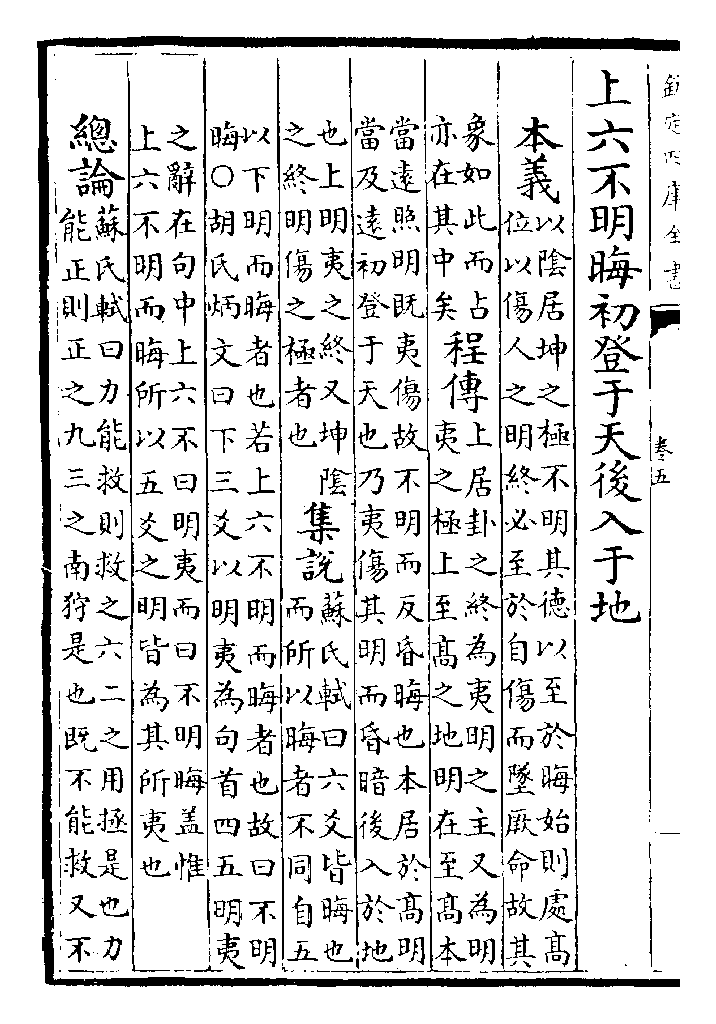 欽定四庫全書
卷五
上六不明晦初登于天後入于地
本義
以陰居坤之極不明其德以至於晦始則處髙
位以傷人之明終必至於自傷而墜厥命故其
象如此而占
亦在其中矣
程傳
上居卦之終為夷明之主又為明
夷之極上至髙之地明在至髙本
當遠照明既夷傷故不明而反昏晦也本居於髙明
當及遠初登于天也乃夷傷其明而昏暗後入於地
也上明夷之終又坤陰
之終明傷之極者也
集說
蘇氏軾曰六爻皆晦也
而所以晦者不同自五
以下明而晦者也若上六不明而晦者也故曰不明
晦○胡氏炳文曰下三爻以明夷為句首四五明夷
之辭在句中上六不曰明夷而曰不明晦盖惟
上六不明而晦所以五爻之明皆為其所夷也
總論
蘇氏軾曰力能救則救之六二之用拯是也力
能正則正之九三之南狩是也既不能救又不